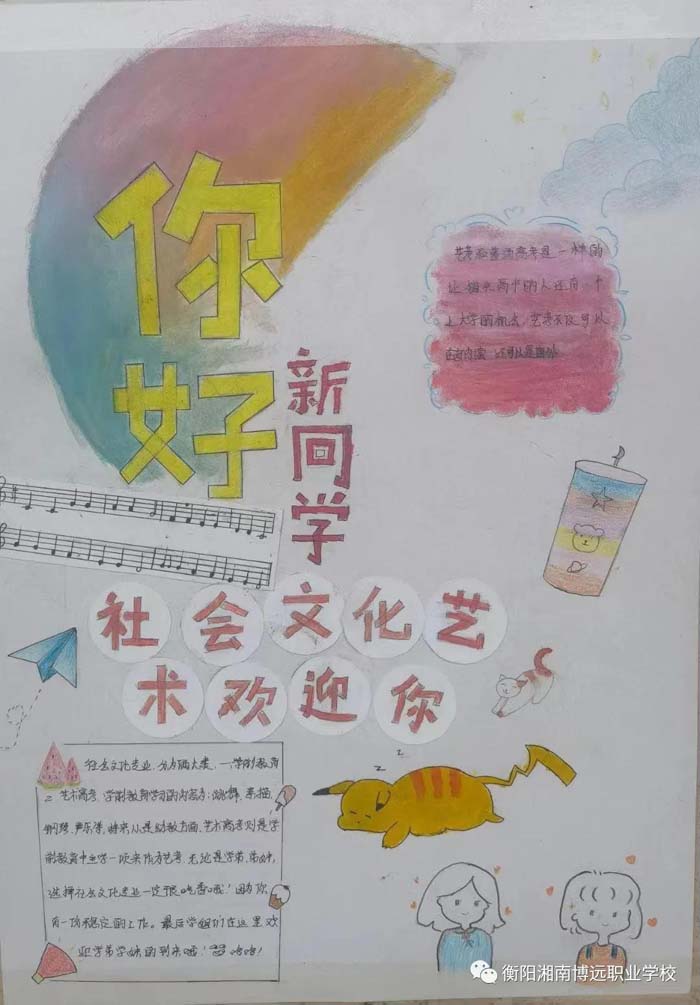 你好
新同学
艺考和普通高考是一样的
让错失高中的人还有一个
上大学的机会,艺考不仅可以
社会文化艺
术欢迎你
社会文化专业,分为俩大类,一学前教育
二艺术高考,学前教育学习的内容有:跳舞,素描,
钢琴,声乐等,将来从是幼教方面,艺术高考则是学
前教育中主学一项来作为艺考,无论是学弟,学妹,
选择社会文化专业一定很吃香哦!因为你
有一份稳定的工作。最后学姐们在这里欢
迎学弟学妹的到来哦!哈哈!
z
z
z
衡阳湘南博远职业学校